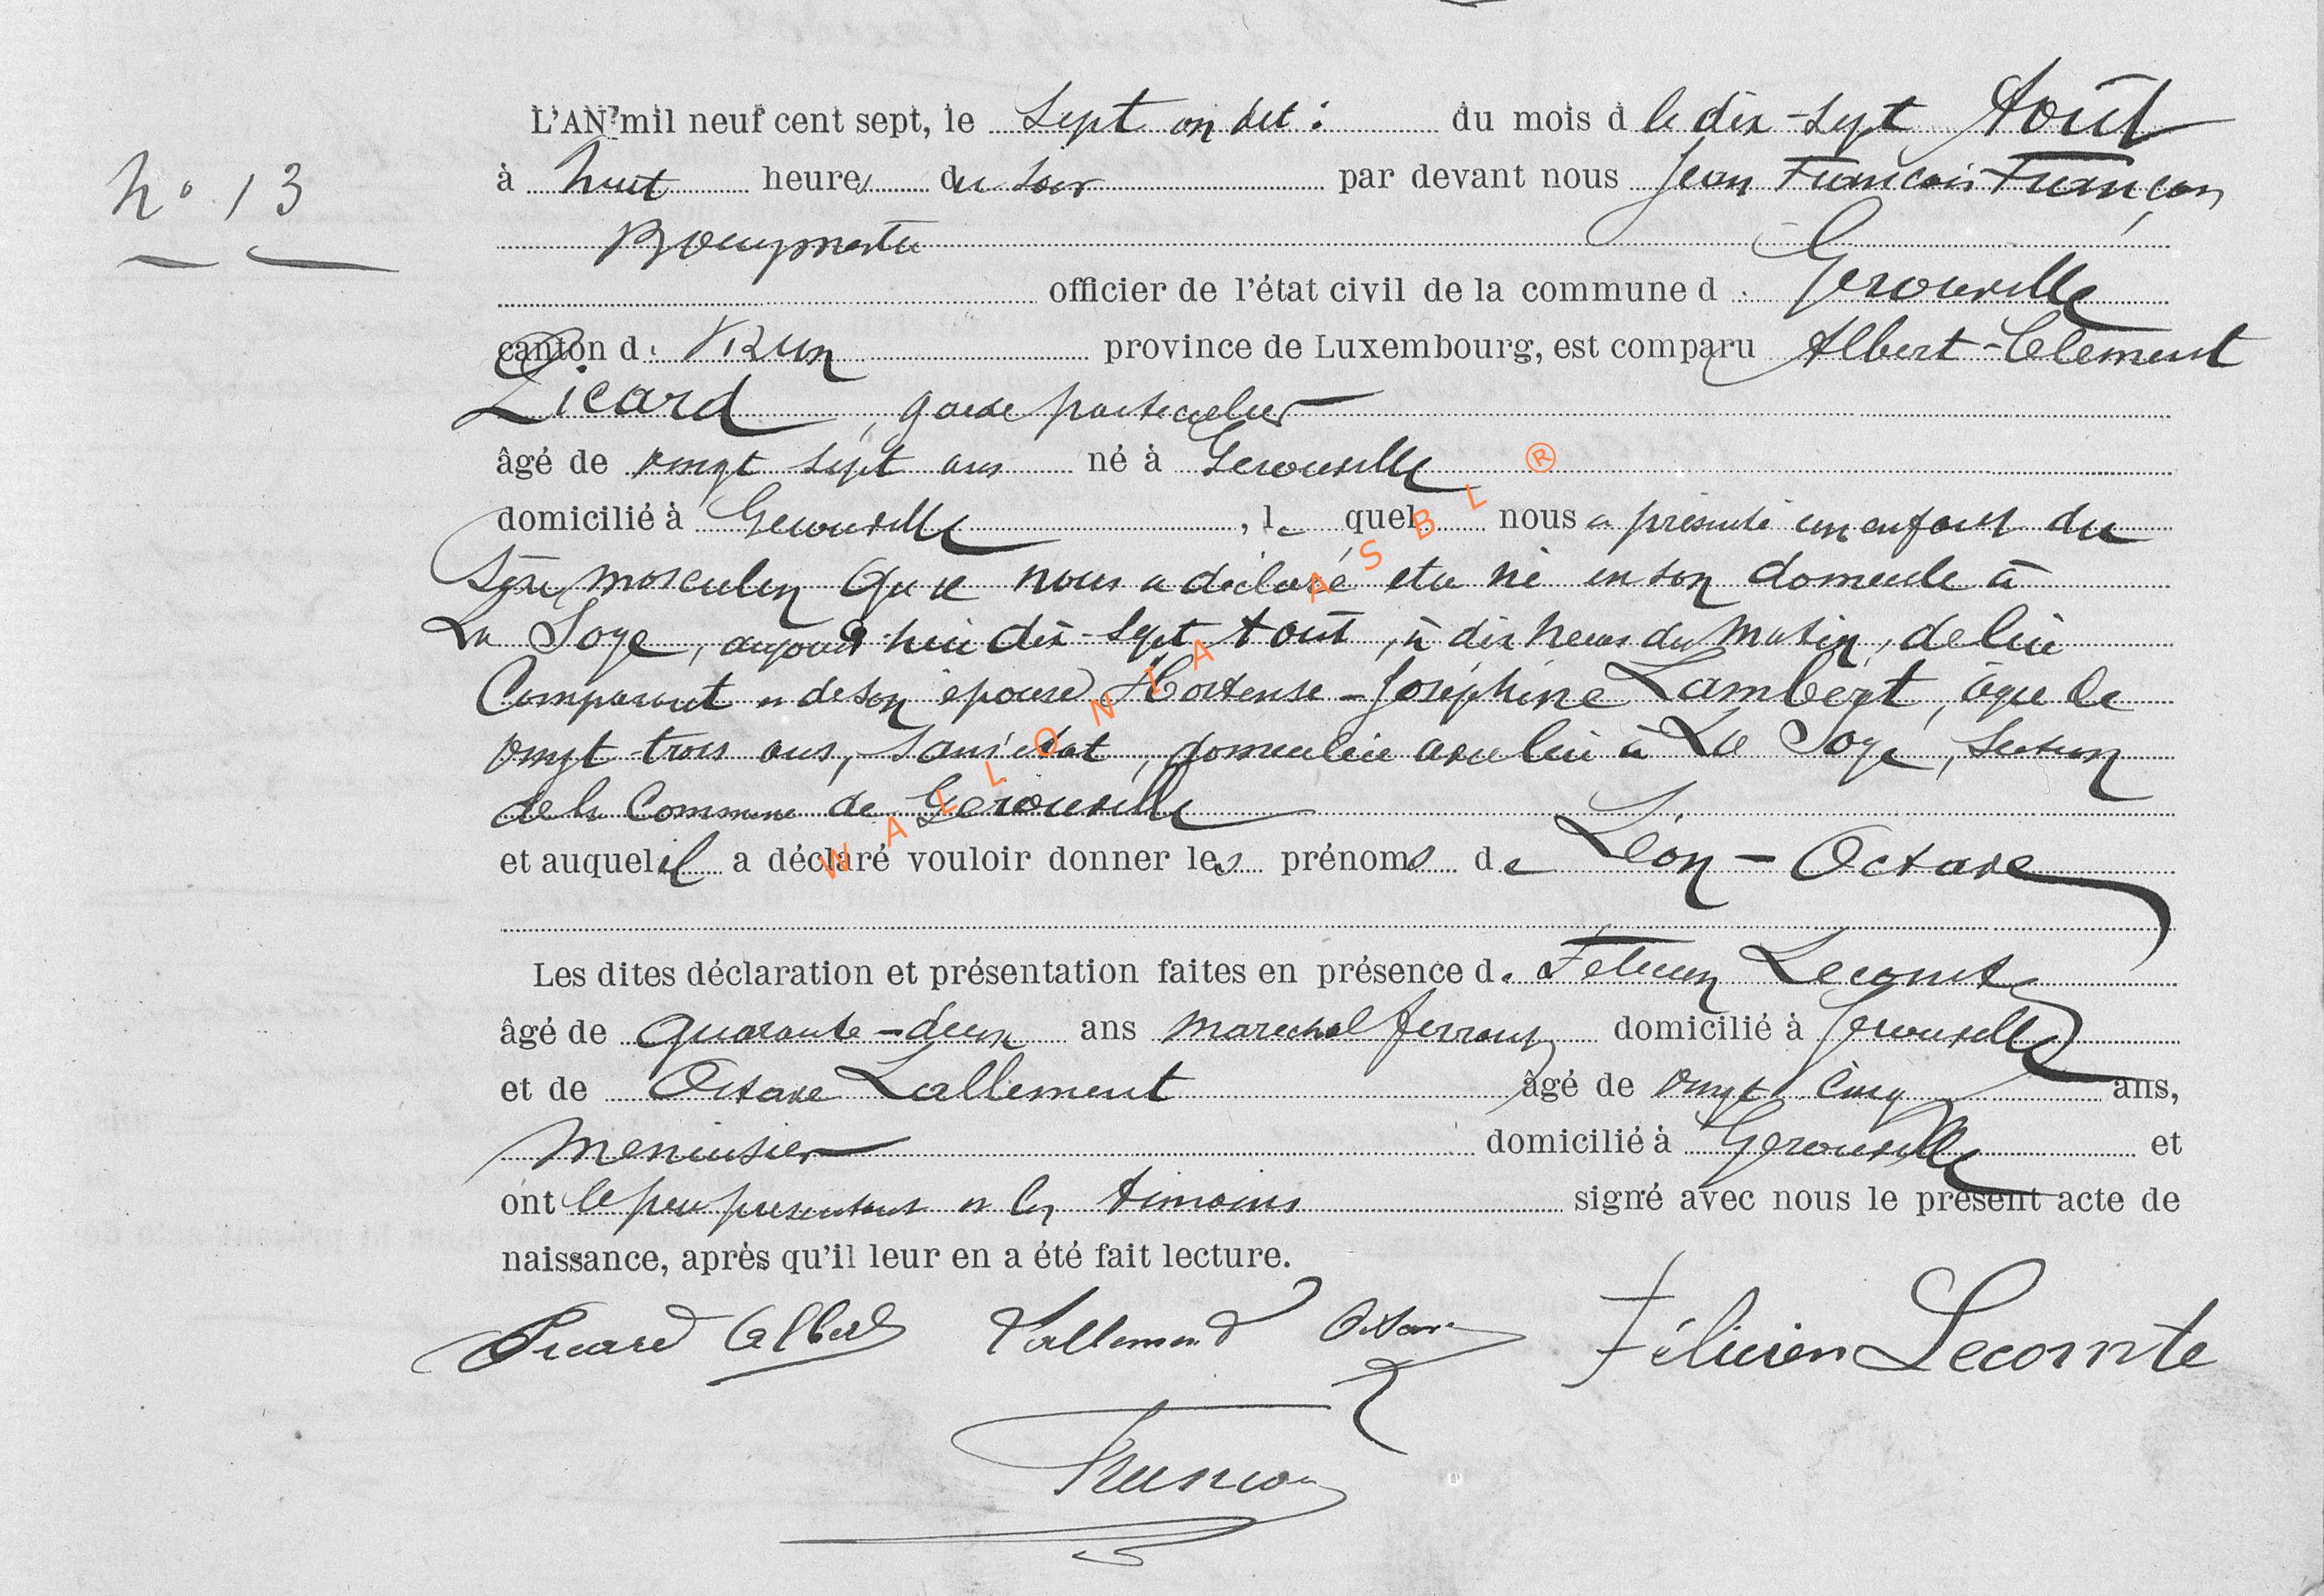 L'AN mil neuf cent sept, le Sept on dit : du mois d le dix-sept Août
n° 13
à huit heures du soir par devant nous Jean François Françon
Bourgmestre
officier de l'état civil de la commune de Gérouville
canton de Virton province de Luxembourg, est comparu Albert-Clément
Picard, garde particulier
âgé de vingt sept ans né à Gérouville
domicilié à Gérouville, lequel nous a présenté un enfant du
sexe masculin qu'il nous a déclaré être né en son domicile à
La Soye, aujourd'hui dix-sept Août, à dix heures du matin, de lui
Comparant et de son épouse Hortense-Joséphine Lambert, âgée de
vingt-trois ans, sans état, domiciliée avec lui à La Soye, section
de la Commune de Gérouville
et auquel il a déclaré vouloir donner les prénoms de Léon-Octave
Les dites déclaration et présentation faites en présence de Félicien Lecomte
âgé de quarante-deux ans maréchal ferrant domicilié à Gérouville
et de Octave Lallement âgé de vingt cinq ans,
menuisier domicilié à Gérouville et
ont le père présentant et les témoins signé avec nous le présent acte de
naissance, après qu'il leur en a été fait lecture.
Picard Albert Lallement Octave Félicien Lecomte
Françon
WALLONIA ASBL ®